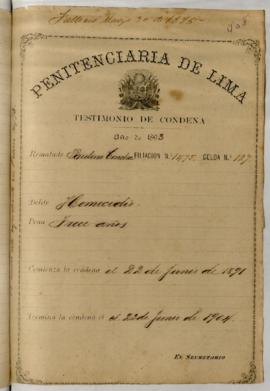 Falleció Mayo 30 de 1895
PENITENCIARIA DE LIMA
TESTIMONIO DE CONDENA
Año de 1893
Rematado FILIACION N.º 1475 CELDA N.º 127
Delito Homicidio
Pena Trece años
Comienza la condena el 22 de Junio de 1891
Termina la condena el 22 de Junio de 1904.
EL SECRETARIO